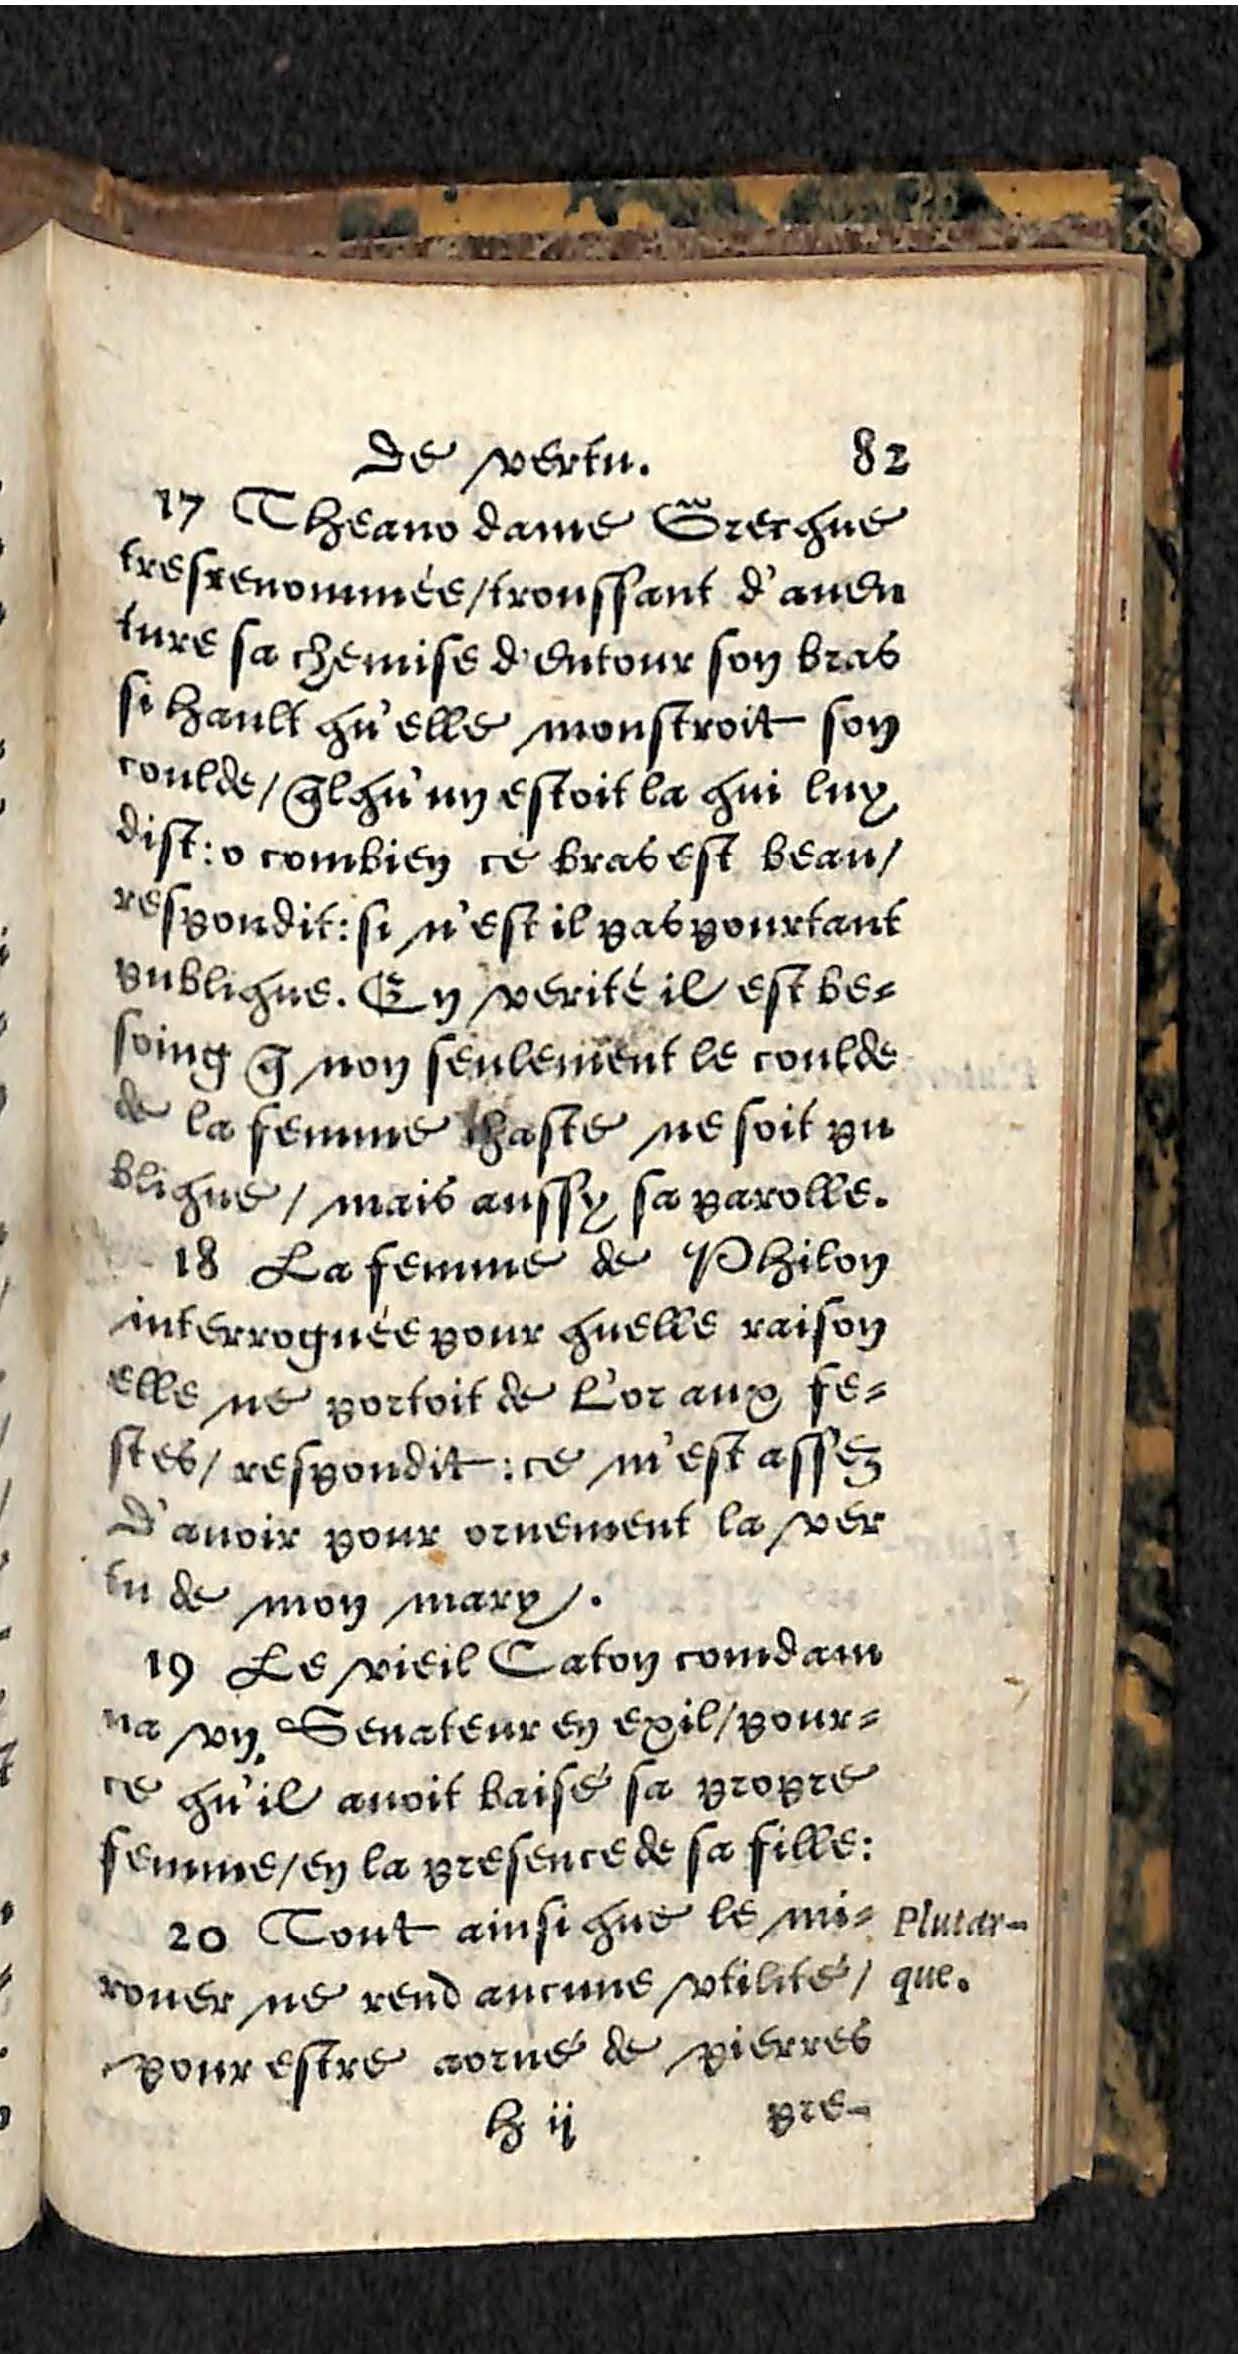 De vertu. 82
17 Theano dame Grecque
tresrenommée/troussant d'auen
ture sa chemise d'entour son bras
si hault qu'elle monstroit son
coulde/ q̃lqu'un estoit la qui luy
dist: o combien ce bras est beau/
respondit: si n'est il pas pourtant
publique. En verité il est be-
soing q̃ non seulement le coulde
de la femme chaste ne soit pu
blique/ mais aussy sa parolle.
18 La femme de Philon
interroguée pour quelle raison
elle ne portoit de l'or aux fe-
stes/ respondit: ce m'est assez
d'auoir pour ornement la ver
tu de mon mary.
19 Le vieil Caton comdam
na vn Senateur en exil/pour-
ce qu'il auoit baisé sa propre
femme/en la presence de sa fille:
20 Tout ainsi que le mi- Plutar-
rouer ne rend aucune vtilité/ que.
pour estre aorné de pierres
h ij pre-